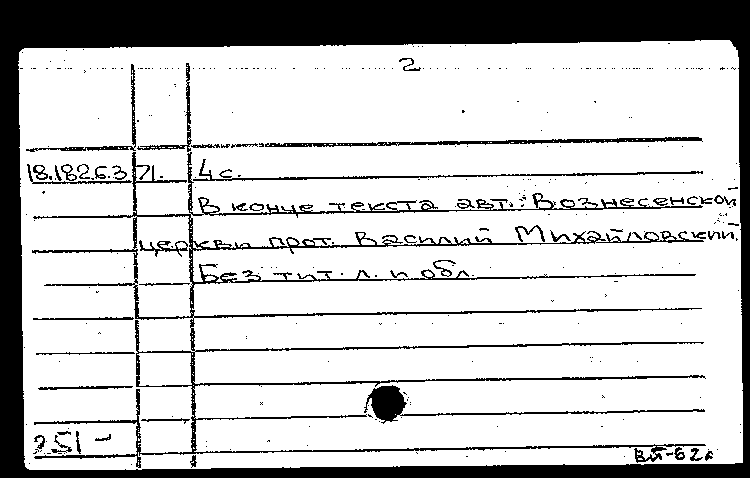 2
18.182.6.3 71. 4 с.
В конце текста авт.: Вознесенской
церкви прот. Василий Михайловский.
Без тит. л. и обл.
251 -